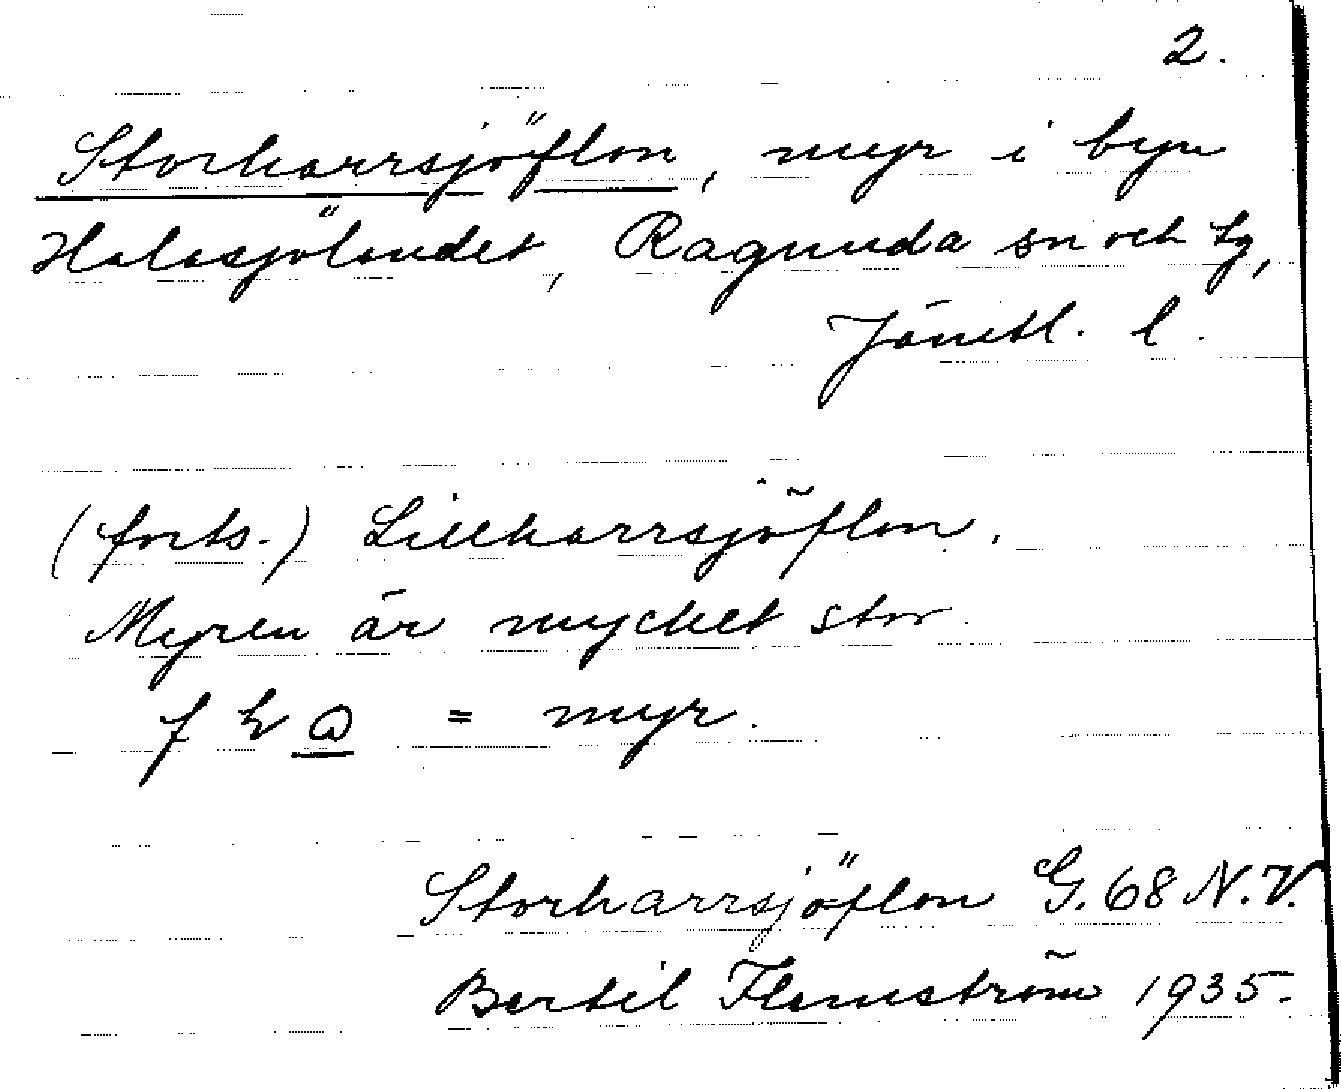 2.
Storharrsjöflon, myr i byn
Halasjölandet, Ragunda sn och tg,
Jämtl. l.
(forts.) Lillharrsjöflon.
Myren är mycket stor.
= myr.
Storharrsjöflon G. 68 N.V.
Bertil Flemström 1935.